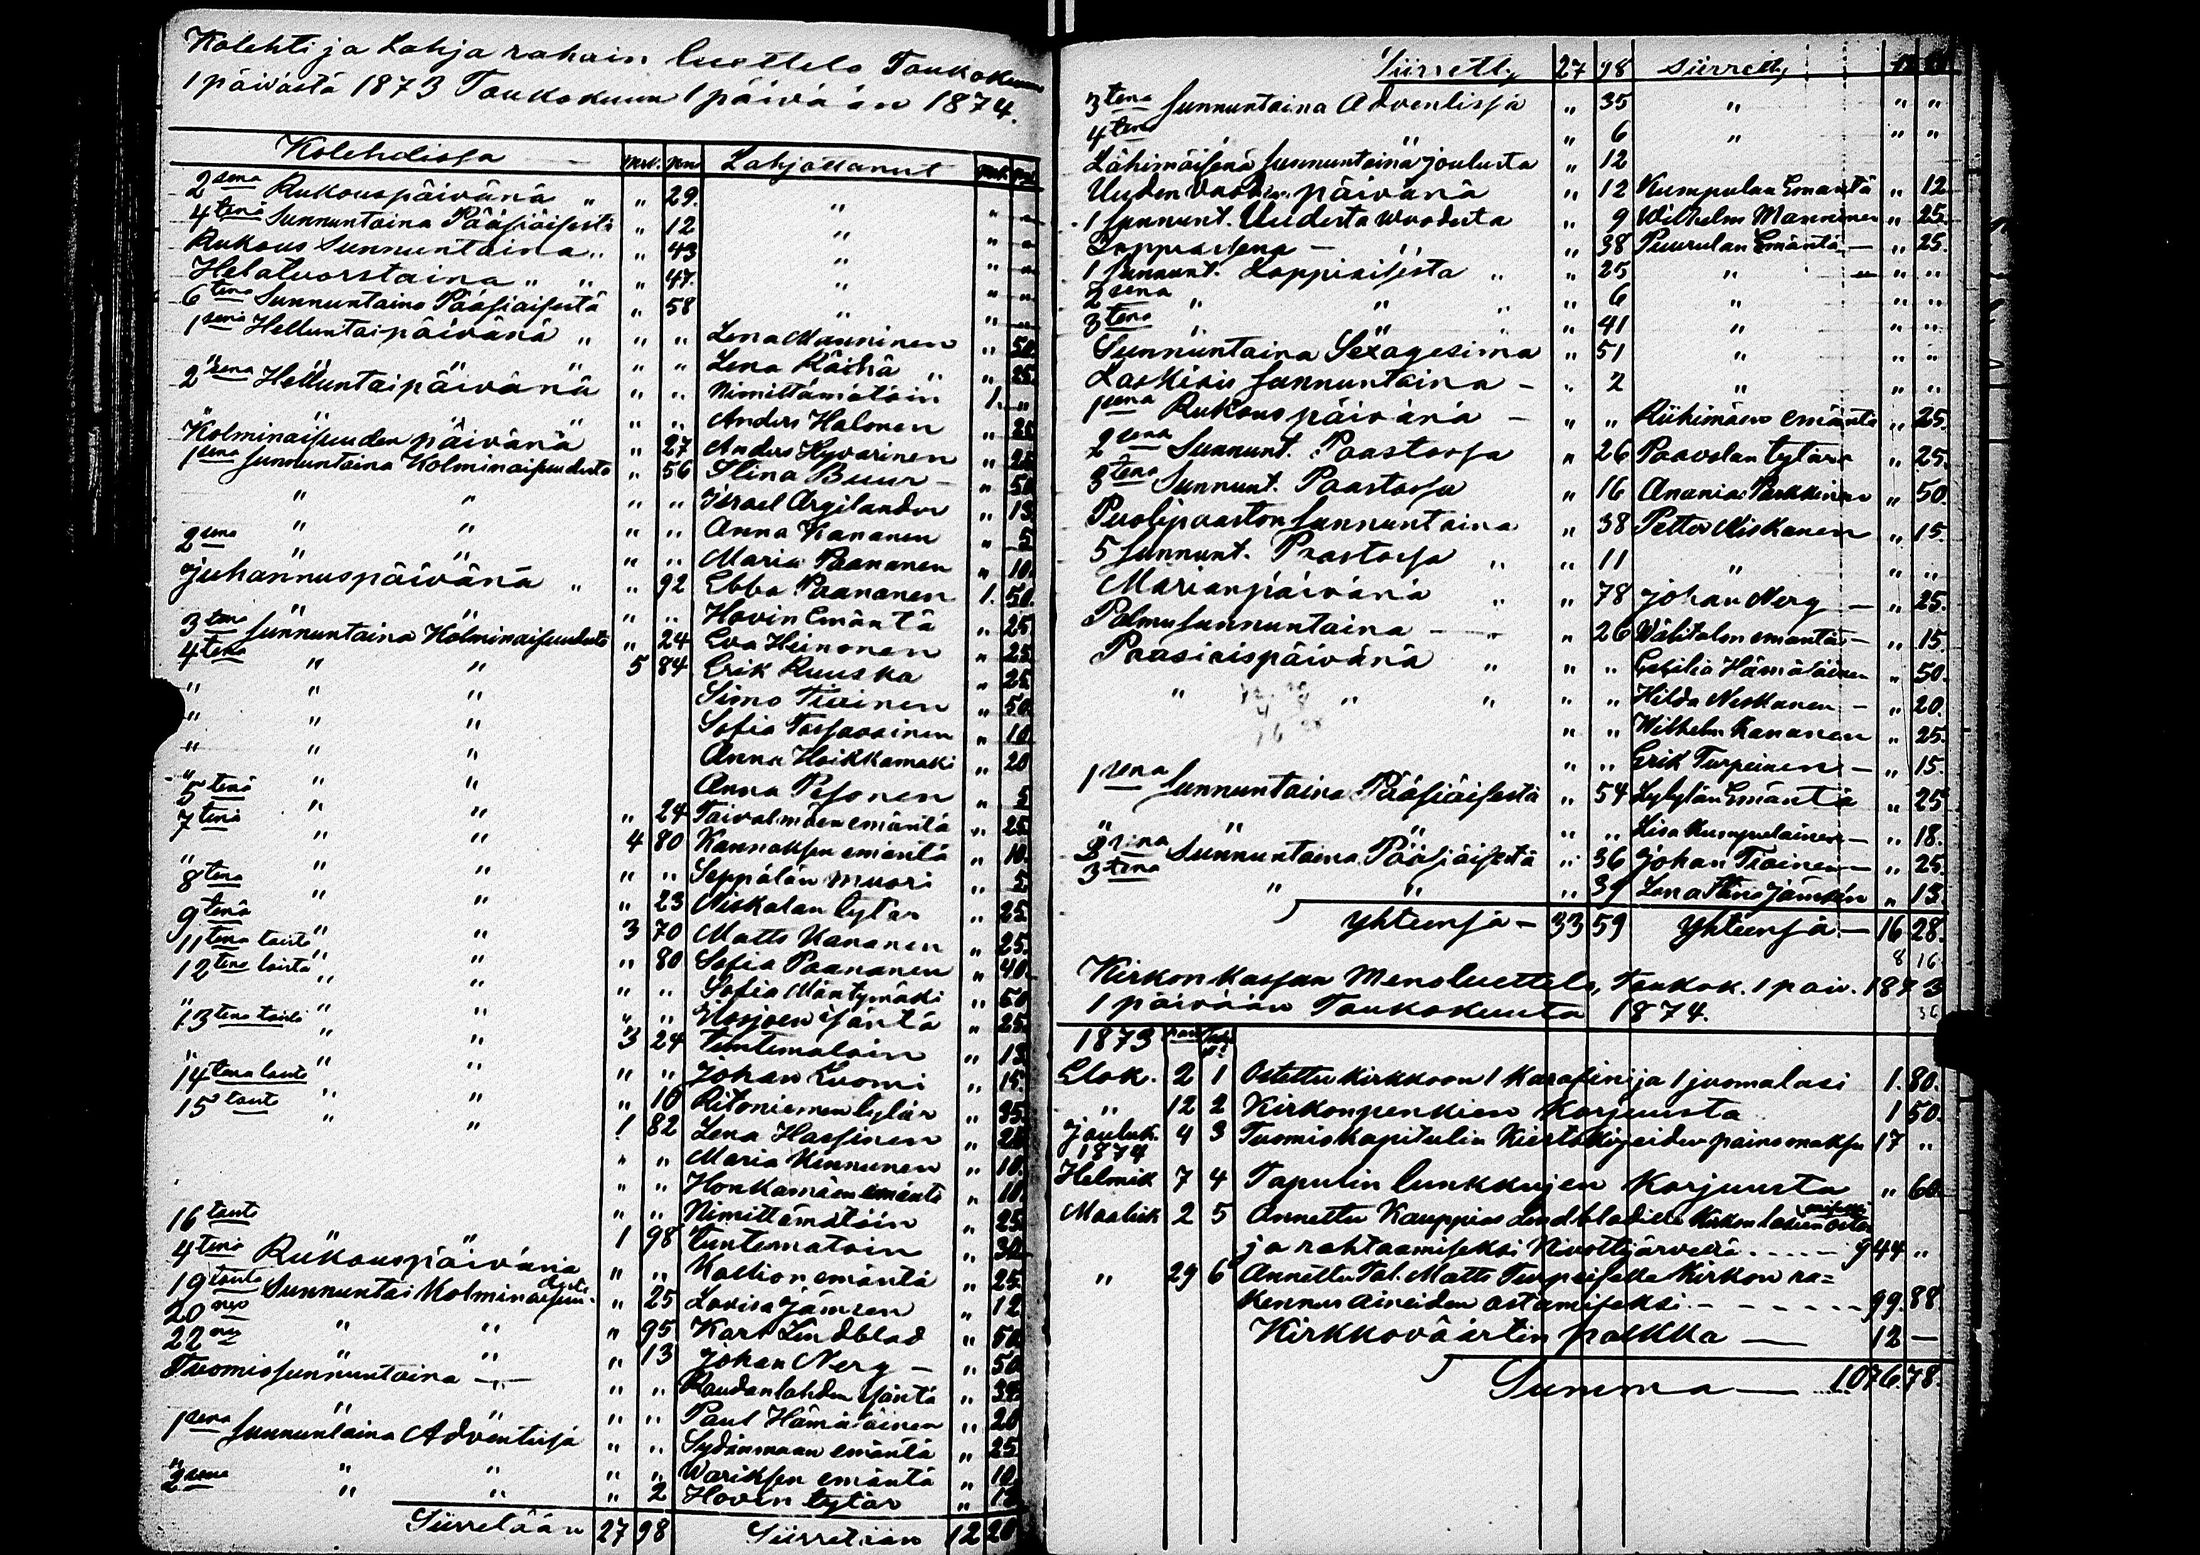 Kolehti ja Lahja rahain luettelo Toukokuun
1 päivästä 1873 Toukokuun 1 päivään 1874.
Kolehdissa mrk. pn Lahjoittanut mrk. pn
2sena Rukouspäivänä " " 29. " " "
4tenä Sunnuntaina Pääsiäisestä " 12 " " "
Rukous Sunnuntaina " " 43 " " "
Helatuorstaina " " " 47. " " "
6tena Sunnuntaina Pääsiäisestä " 58 " " "
1senä Helluntaipäivänä " " " Lena Manninen " 50.
" " " " Lena Räihä " " 25.
2sena Helluntaipäivänä " " Nimittämätöin 1. "
" " " " " Anders Halonen " 25
Kolminaisuuden päivänä " 27 Anders Hyvärinen " 25
1senä sunnuntaina Kolminaisuudesta " 56 Stina Buur " 50
" " " " Israel Argilander " 13.
" " " " Anna Kananen " 5
2sena " " " " Maria Paananen " 10.
Juhannuspäivänä " " 92 Ebba Paananen 1. 50.
" " " " Hovin Emäntä " 25
3tena sunnuntaina Kolminaisuudesta " 24 Eva Heinonen " 25
4tenä " " 5 84 Erik Ruuska " 25
" " " Simo Tiainen " 50.
" " " Sofia Tossavainen " 10
" " " Anna Hoikkamäki " 20
" " " Anna Pesonen " 5
5tenä " " " 24 Taivalmäen emäntä " 25
7tenä " " 4 80 Kannaksen emäntä " 10.
" " " " " Seppälän muori " 5
8tena " " " 23 Niskalan tytär " 25.
9tenä " " 3 70 Matts Kananen " 25.
11tena taista " " " 80 Sofia Paananen " 40.
12tena taista " " " " Sofia Mäntymäki " 50
" " " " " isäntä " 25.
13tena taista " " 3 24 Tuntematoin " 13
" " " " " Johan Luomi " 15.
14tena taista " " " 10 Ritoniemen tytär " 35.
15 taista " " 1 82 Lena Hassinen " 25
" " Maria Kinnunen " 10.
" " Honkamäen emäntä " 10.
" " Nimittämätöin " 25
16 taista " " 1 98 Tuntematoin " 30
4tenä Rukouspäivänä " " Kallion emäntä " 25.
19 taista Sunnuntai Kolminaisuudesta " 25 Lovisa Jämsen " 12
20nes " " " 95 Karl Lindblad " 50
22nes " " " 13 Johan Nerg — " 50
Tuomiosunnuntaina — " — " " Raudanlahden isäntä " 32.
" " " " Paul Hämäläinen " 20
1senä sunnuntaina Adventissa " " Sydänmaan emäntä " 25
" " " " " Wariksen emäntä " 10.
2sena " " " 2 Hovin tytär " 12
Siirretään 27 98 Siirretään 12 20
Siirretty 27 98 Siirretty 12 20
3tena Sunnuntaina Adventissa " 35 " " "
4tena " " 6 " " "
Lähimäisenä sunnuntaina joulusta " 12
Uuden Vuoden päivänä " 12 Kumpulan Emäntä " 12
1 sunnunt. Uudesta Wuodesta " 9 Wilhelm Manninen " 25
Loppiaisena — " " 38 Puurulan Emäntä — " 25.
1 sunnunt. Loppiaisesta " " 25 " " "
2sena " " " " 6 " " "
3tena " " " " 41 " " "
Sunnuntaina Sexagesima " 51 " " "
Laskiais sunnuntaina — " 2 " " "
1sena Rukous päivänä — " " Riihimäen emäntä " 25.
2sena Sunnunt. Paastossa " 26 Paavolan tytär " 25.
3tena Sunnunt. Paastossa " 16 Anania Parkkinen " 50
Puolipaaston sunnuntaina " 38 Petter Niskanen " 15.
5 sunnunt. Paastossa " " 11 " " "
Marianpäivänä " " 78 Johan Nerg — " 25.
Palmusunnuntaina — " " 26 Välitalon emäntä — " 15.
Paasiaispäivänä " " " Cesilia Hämäläinen " 50.
" " " " " Hilda Niskanen — " 20.
" " Wilhelm Kananen " 25.
" " Erik Turpeinen — " 15.
1sena sunnuntaina Pääsiäisestä " 54 Lylylän Emäntä " 25
" " " " " Lisa Kumpulainen — " 18.
2sena Sunnuntaina Pääsiäisestä " 36 Johan Tiainen — " 25.
3tena " " " 39 Lena Stina Jämsen " 13
Yhteensä — 33 59 Yhteensä — 16 28.
8 16
Kirkon kassan Menoluettelo, Toukok. 1 päiv. 1873
1 päivään Toukokuuta 1874.
36
1873
Elok. 2 1 Ostettu kirkkoon 1 karafiini ja 1 juomalasi 1. 80.
" 12 2 Kirkonpenkien korjuusta 1 50.
Jouluk. 4 3 Tuomiokapitulin Kiertokirjeiden painomaksu 17 "
1874
Helmik 7 4 Tapulin lunkkujen korjuusta " 60.
Maalisk 2 5 Annettu Kauppias Lindbladille kirkon lasien
ja rahtaamiseksi Nivottjärveltä ..... — 944 "
" 29 6 Annettu Tal. Matts Turpeiselle Kirkon ra=
kennus aineiden ostamiseksi — — — 99. 88
Kirkkoväärtin palkka — 12 —
Summa — 1076. 78.